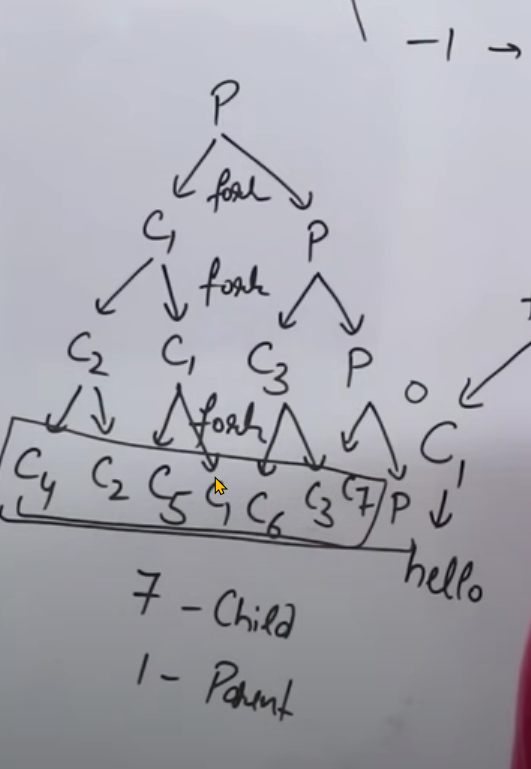 -1 →
P
fork
C1 P
fork
C2 C1 C3 P
0
fork
C1
C4 C2 C5 C1 C6 C3 C7 P
hello
7 - Child
1 - Parent